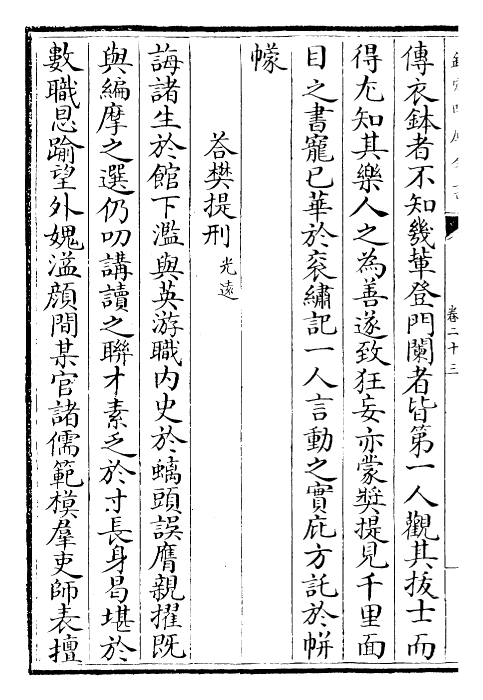 欽定四庫全書
卷二十三
傳衣鉢者不知幾輩登門闌者皆第一人觀其拔士而
得尤知其樂人之為善遂致狂妄亦蒙奬提見千里面
目之書寵已華於衮繡記一人言動之實庇方託於帡
幪
荅樊提刑光遠
誨諸生於館下濫與英游職内史於螭頭誤膺親擢既
與編摩之選仍叨講讀之聯才素乏於寸長身曷堪於
數職恩踰望外媿溢顔間某官諸儒範模羣吏師表擅